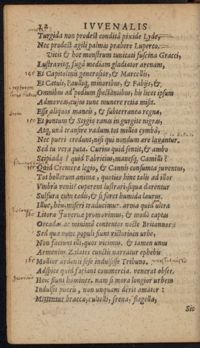 12 IVVENALIS
Turgida non prodest condita pyxide Lyde,
Nec prodest agili palmas præbere Luperco.
Vicit & hoc monstrum tunicati fuscina Gracci,
Lustravitq́; fuga mediam gladiator arenam,
145 Et Capitolinis generosior, & Marcellis,
Et Catuli, Pauliq́; minoribus, & Fabijs, &
Omnibus ad podium spectantibus, his licet ipsum
Admoveas, cuius tunc munere retia misit.
Esse aliquos maneis, & subterranea regna,
150 Et pontum & Stygio ranas in gurgite nigras,
Atq; una transire vadum tot millia cymba,
Nec pueri credunt, nisi qui nondum ære lavantur.
Sed tu vera puta. Curius quid sentit, & ambo
Scipiadæ? quid Fabricius, manesq́; Camilli?
Quid Cremeræ legio, & Cannis consumta juventus,
Tot bellorum animæ, quoties hinc talis ad illos
Umbra venit? cuperent lustrari, si qua darentur
Sulfura cum tedis, & si foret humida laurus.
Illuc, heu, miseri traducimur. arma quid ultra
160 Litora Iuvernæ promovimus, & modo captas
Orcadas, ac minima contentos nocte Britannos?
Sed quæ nunc populi fiunt victoris in urbe,
Non faciunt illi, quos vicimus. & tamen unus
Armenius Zalates cunctis narratur ephebis
165 Mollior ardenti sese indulsisse Tribuno.
Adspice quid faciant commercia. venerat obses.
Heic fiunt homines. nam si mora longior urbem
Indulsit pueris, non unquam deerit amator:
Mittentur braccæ, cultelli, frena, flagella,
Sic